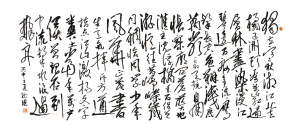 独立寒秋湘江北去
橘子洲头看万山红遍
层林尽染漫江
碧透百舸争流鹰
击长空鱼翔浅底
万类霜天竞自由
怅寥廓问苍茫大地
谁主沉浮携来百侣曾
游忆往昔峥嵘岁月稠
恰同学少年
风华正茂书
生意气挥斥方遒
指点江山激扬文字
粪土当年万户
侯曾记否到
中流击水浪遏
飞舟